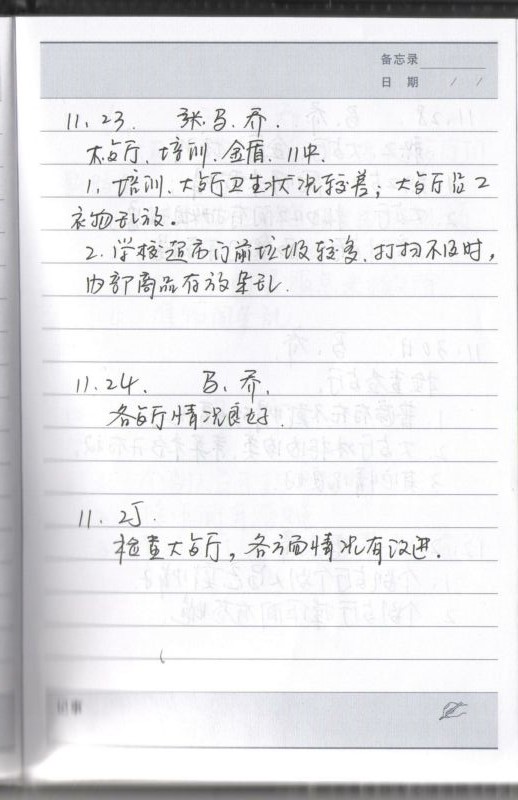 备忘录
日 期 / /
11.23. 张.马.乔.
大与厅.培训.金盾.11中.
1.培训.大与厅卫生状况较差;大与厅员工
衣物乱放。
2.学校超市门前垃圾较多.打扫不及时,
内部商品存放杂乱.
11.24. 马.乔.
各与厅情况良好.
11.25.
检查大与厅,各方面情况有改进.